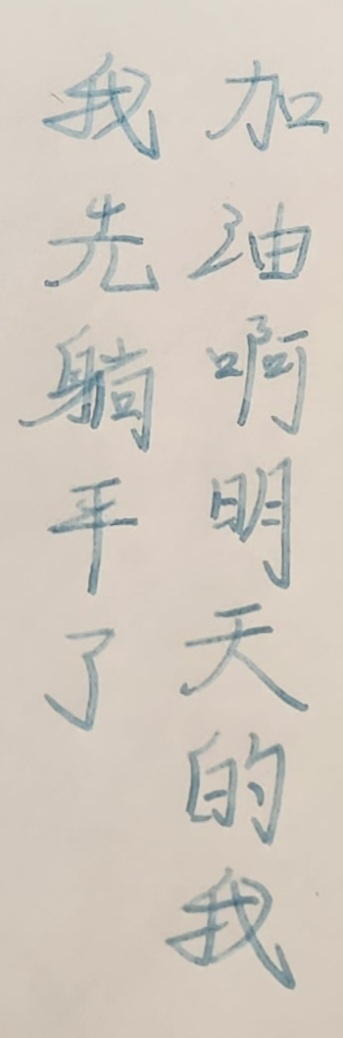 加油啊明天的我
我先躺平了